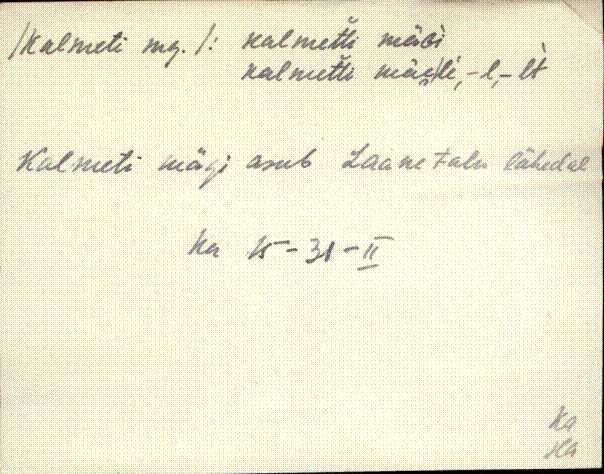 /Kalmeti mg. /: kalmetti mäGi
kalmetti mäele, -l, -lt
Kalmeti mägi asub Laane talu lähedal
Ka 15-31-II
Ka